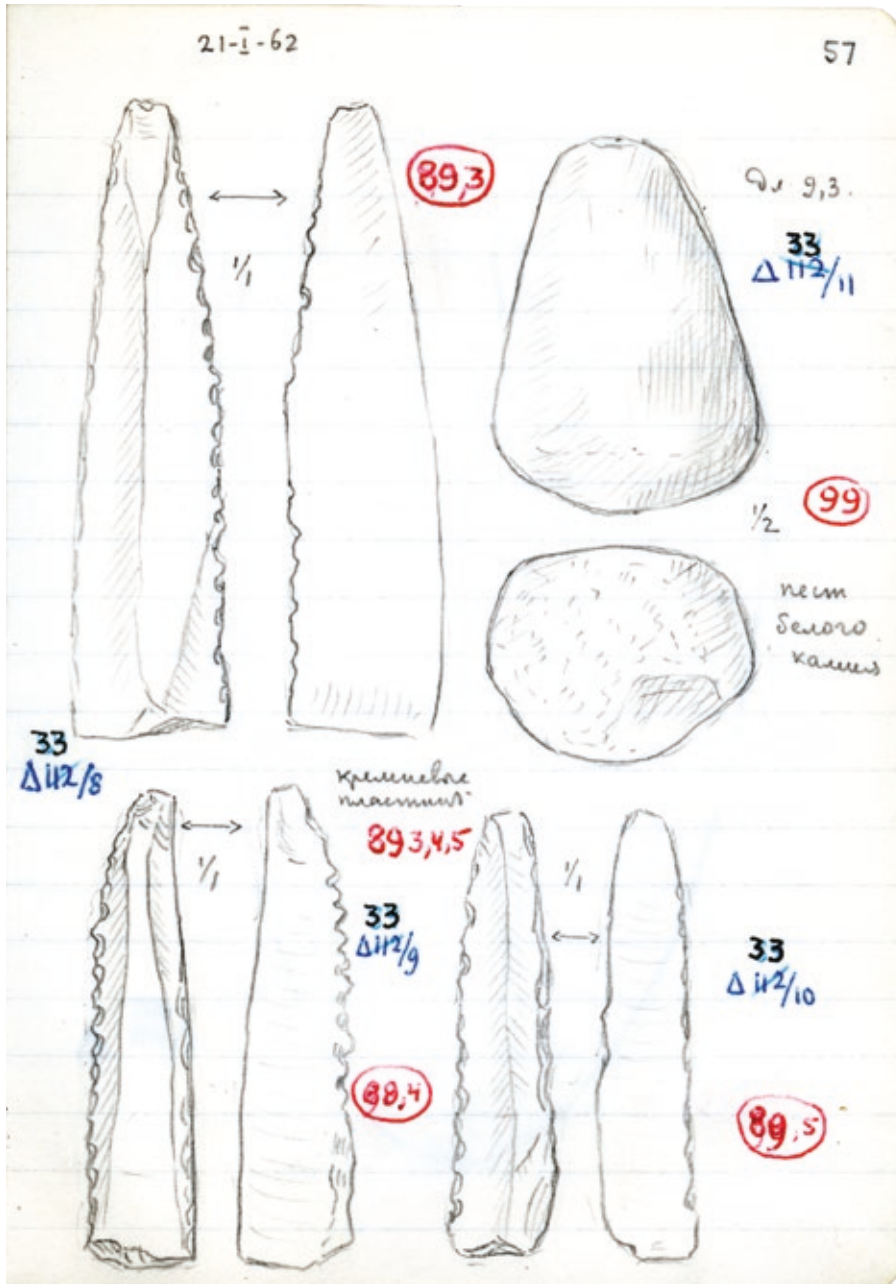 21-I-62
57
89,3
дл. 9,3.
33
Δ 112/11
1/1
99
1/2
пест
белого
камня
33
Δ 112/8
кремневые
пластины
89 3,4,5
1/1
1/1
33
Δ 112/9
33
Δ 112/10
89,4
89,5